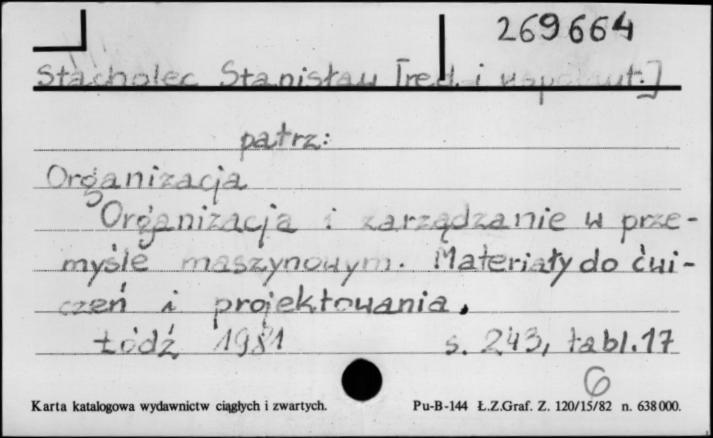 269664
Stacholec Stanisław [red. i współaut.]
patrz:
Organizacja
Organizacja i zarządzanie w prze-
myśle maszynowym. Materiały do ćwi-
czeń i projektowania.
Łódź 1981 s. 243, tabl. 17
6
Karta katalogowa wydawnictw ciągłych i zwartych. Pu-B-144 Ł.Z.Graf. Z. 120/15/82 n. 638000.